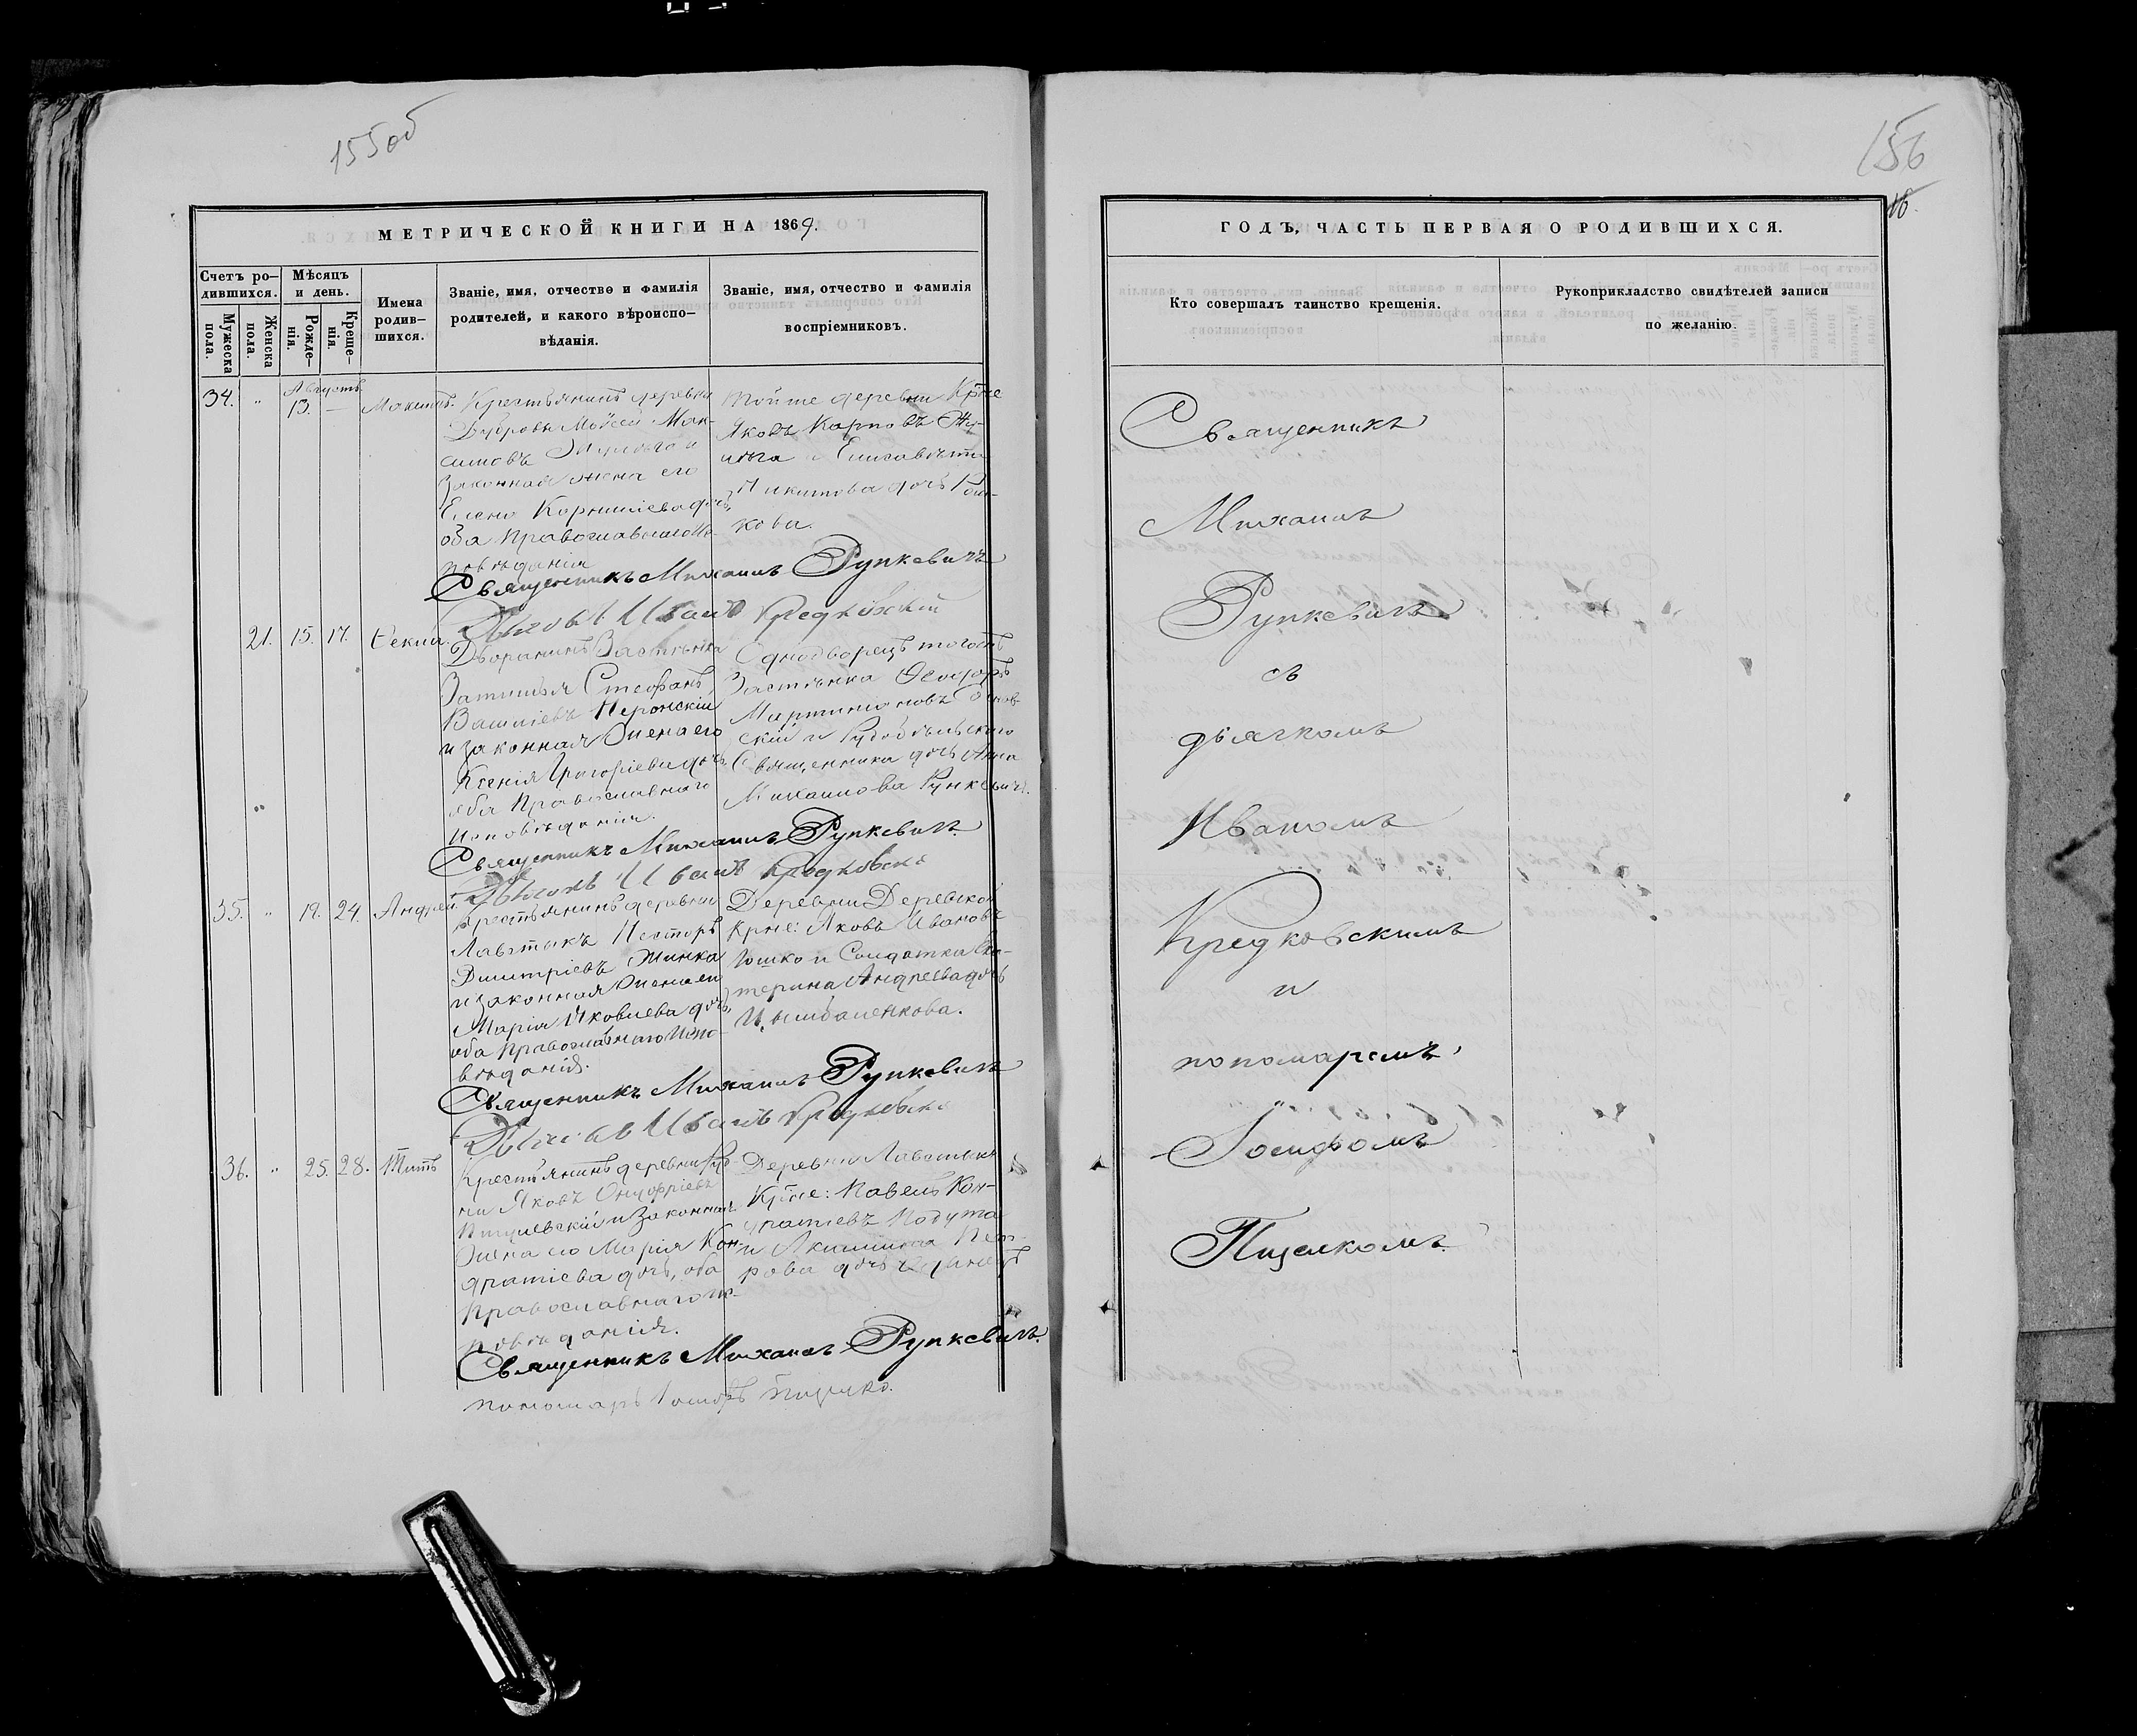 155об
МЕТРИЧЕСКОЙ КНИГИ НА 1869.
Счетъ ро-
дившихся.
Мѣсяцъ
и день.
Имена
родив-
шихся.
Званіе, имя, отчество и фамилія
родителей, и какого вѣроиспо-
вѣданія.
Званіе, имя, отчество и фамилія
воспріемниковъ.
Мужеска
пола.
Женска
пола.
Рожде-
нія.
Креще-
нія.
34. " Августъ 13. — Максимъ.
Крестьянинъ деревни
Дубровы Моисей Мак-
симовъ
законная жена его
Елена Корнилiева дочь,
оба Православнаго Ис-
повѣданія
Той же деревни Крне
Яковъ Карповъ Жу-
и Елисавета
Никитова дочь
кова.
Священникъ Михаилъ Рункевичъ
Дьячокъ Иванъ Кредковскій
21. 15. 17. Ѳекла
Дворянинъ Застѣнка
Затишья Стефанъ
Василіевъ
и законная жена его
Ксенія Григоріева дочь
оба Православнаго
Исповѣданія.
Однодворецъ тогожъ
Застѣнка Ѳеодоръ
Мартиновъ
скій и
Священника дочь Анна
Михаилова Рункевичъ.
Священникъ Михаилъ Рункевичъ.
Дьячокъ Иванъ Кредковскій
35. " 19. 24. Андрей
Крестьянинъ деревни
Лавстыкъ Несторъ
Димитріевъ Жинка
и законная жена его
Марія Яковлева дочь,
оба Православнаго Испо-
вѣданія.
Деревни Деревской
Крне: Яковъ Ивановъ
Юшко и Солдатка Ека-
терина Андреева дочь
Цымбаленкова.
Священникъ Михаилъ Рункевичъ
Дьячокъ Иванъ Кредковскій
36. " 25. 28. Титъ
Крестьянинъ деревни
Яковъ Онуфріевъ
и законная
жена его Марія Кон-
дратіева дочь, оба
Православнаго Ис-
повѣданія.
Деревни Лавстыкъ
Крне: Павелъ Кон-
дратіевъ Подута
и Акилина Пет-
рова дочь
Священникъ Михаилъ Рункевичъ.
пономарь Іосифъ Пищико.
156
16.
ГОДЪ, ЧАСТЬ ПЕРВАЯ О РОДИВШИХСЯ.
Кто совершалъ таинство крещенія.
Рукоприкладство свидѣтелей записи
по желанію.
Священникъ
Михаилъ
Рункевичъ
съ
дьячкомъ
Иваномъ
Кредковскимъ
и
пономаремъ
Іосифомъ
Пищикомъ.